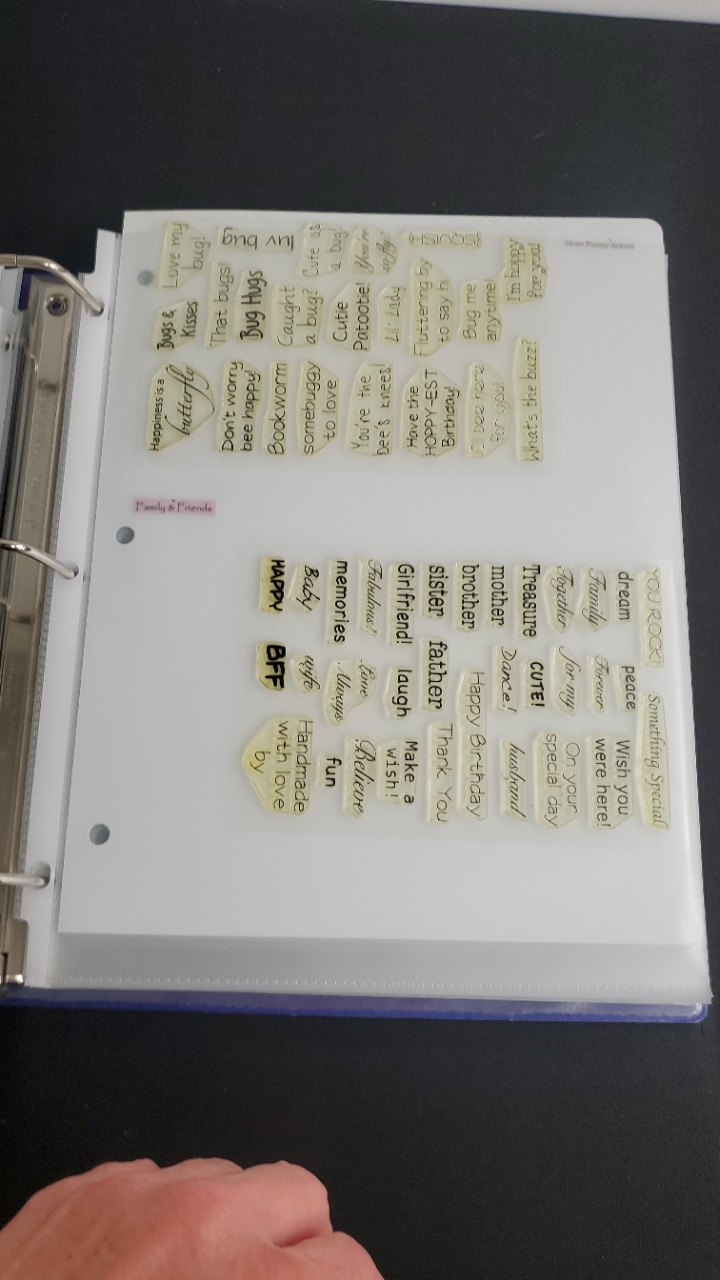 Love my
bug!
Bugs &
Kisses
Happiness is a
butterfly
luv bug
That bugs!
Bug Hugs
Don't worry
bee happy!
Cute as
a bug!
Caught
a bug?
Bookworm
somebuggy
to love
You're
so fly!
Cutie
Patootie!
You're the
bee's knees!
Lil' Lady
Fluttering by
to say h
Have the
HOPPY-EST
Birthday!
Bug me
anytime!
I'll bee here
for you!
I'm hoppy
for you!
What's the buzz?
Family & Friends
YOU ROCK!
Something Special
dream
peace
Wish you
were here!
Family
Forever
Together
for my
On your
special day
Treasure
CUTE!
mother
Dance!
husband
brother
Happy Birthday
sister
father
Thank You
Girlfriend!
laugh
Make a
wish!
Fabulous!
Love
Believe
memories
Always
fun
Baby
wife
Handmade
with love
by
HAPPY
BFF